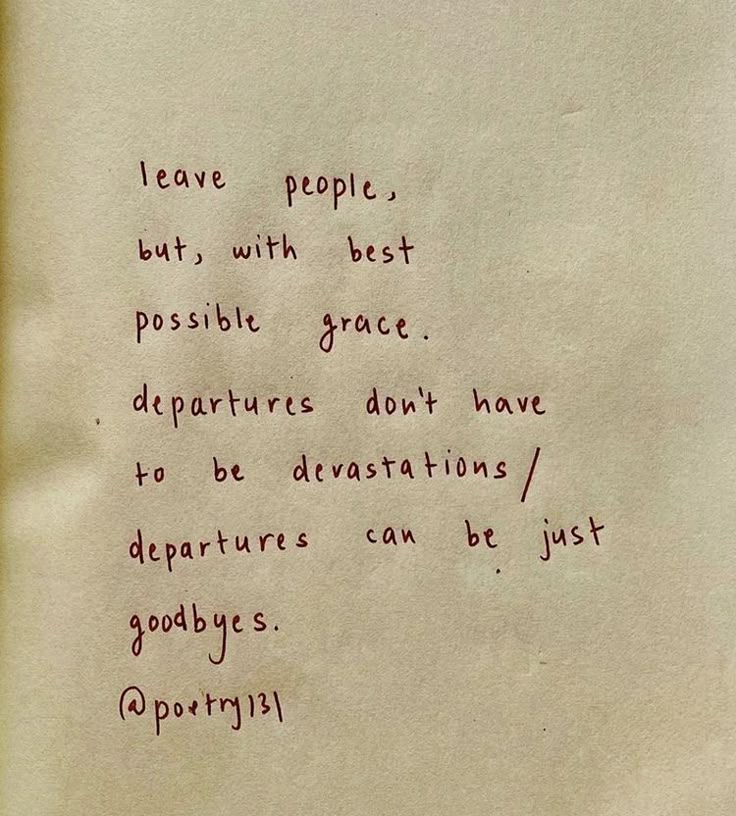 leave people,
but, with best
possible grace.
departures don't have
to be devastations/
departures can be just
goodbyes.
@poetry131